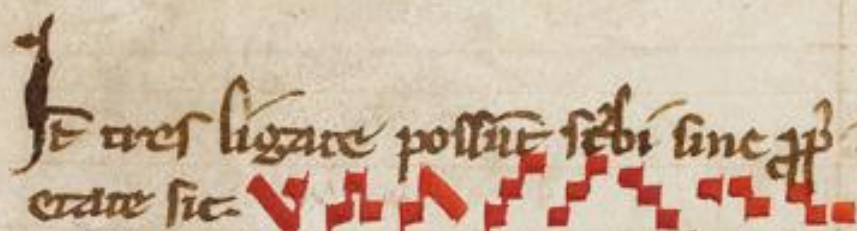 It̄ tres ligate possūt sc̄bi sine p̱p̱i
etate sic.